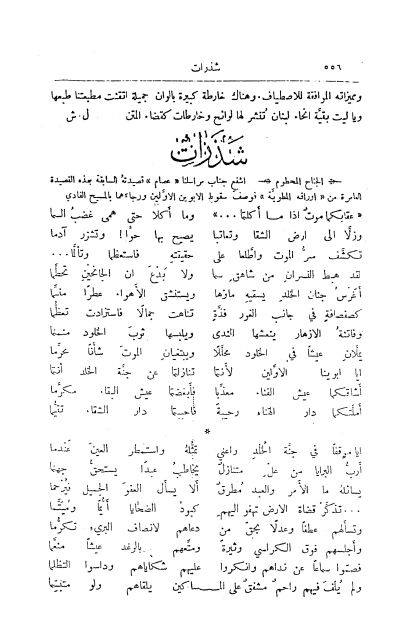 ٥٥٦ شذرات
ومميزاته الموافقة للاصطياف. وهناك خارطة كبيرة بالوان جميلة اتقنت مطبعتنا طبعها
ويا ليت بقيَّة انحاء لبنان تُنشر لها لوائح وخارطات كقضاء المتن ل. ش
شذرات
الجناح المحطوم اشفع جناب مراسلنا «عصام» قصيدتهُ السابقة بهذه القصيدة
العامرة من «اوراقه المطويَّة» فوصف سقوط الابوين الاوَّلين ورجاءهما بالمسيح الفادي
«عقابكما موتٌ اذا ما أكلتما...» وما اكلا حتى همى غضبُ السما
وزلَّا الى ارض الشقا وتعاتبا يصيح بها حوَّا! وتشزر آدما
تكشَّف سرُّ الموت واطَّلعا على حقيقته فاستعظما وتألَّما...
لقد هبط النسران من شاهق سما ولا بُدْعَ ان الجانحَين تحطَّما
أَغرسُ جنان الخلد يسقيهِ ماؤها ويستنشق الاهواء عطرًا منسَّما
كصفصافةٍ في جانب الغور فذَّةٍ تناهت جمالًا فاستزادت تعظُّما
وفاتنةُ الازهار ينعشها الندى ويلبسها ثوبَ الخلود منمنما
يملَّان عيشًا في الخلود محلَّلًا ويبتغيان الموتَ شأنًا محرَّما
ايا ابوينا الاوَّلين لأنتما تنازلتما عن جنَّة الخلد أنتما
أشاقكما عيش الفناء معذَّبًا فأبغضتما عيش البقاء مكرَّما
أملتكما دار الهناء رحيبةً فأحببتما دار الشقاء
*
ايا موقفًا في جنَّة الخلد راعني تمثُّلهُ واستمطر العينَ عندما
أربُّ البرايا من علٍ متنازلٌ يخاطب عبدًا يستحقُّ جهنما
يسائلهُ ما الأمر والعبد مطرقٌ ألا يسأل العفوَ الجميل فيُرحما
...تذكَّرَ قضاة الارض تهفو اليهمِ كبودُ الضحايا
وتسألهم عطفًا وعدلًا بحقّ من دعاهم لانصاف البريء تكرُّما
وأجلسهم فوق الكراسي وثيرةً ومتَّعهم بالرغد عيشًا منعَّما
فصمُّوا سماعًا عن نداهم وانكروا عليهم شكاياهم وداسوا التظلما
ولم يُلفَ فيهم راحمٌ مشفقٌ على المساكين يلقاهم ولو متبسّما